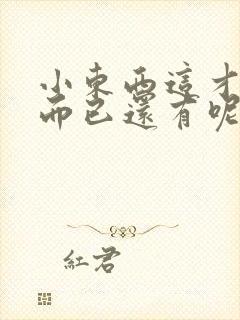 小東西這才
而已還有呢
紅君